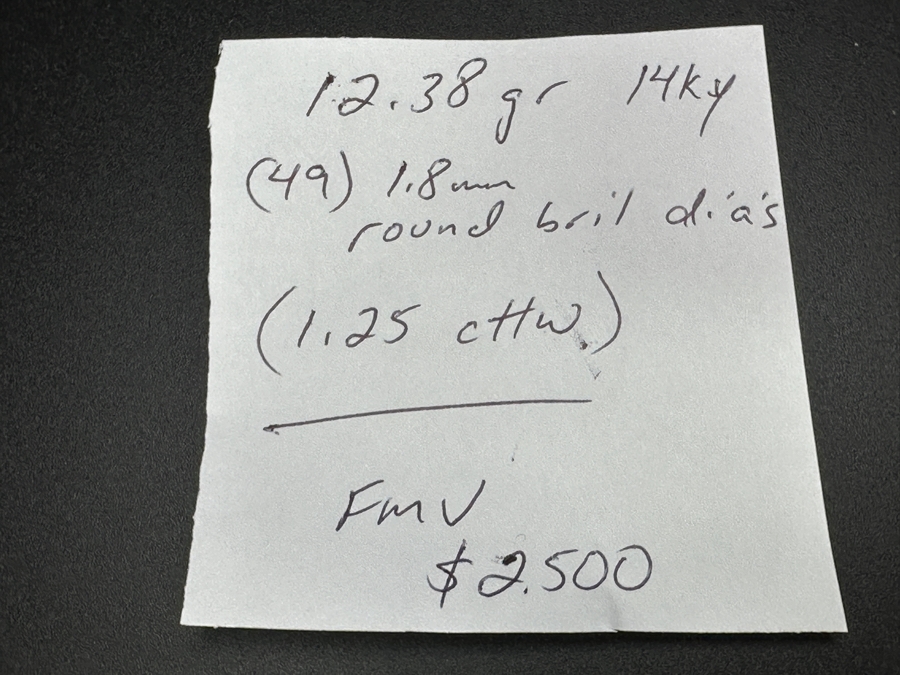 12.38 gr 14ky
(49) 1.8mm
round bril dia's
(1.25 cttw.)
FMV
$2.500